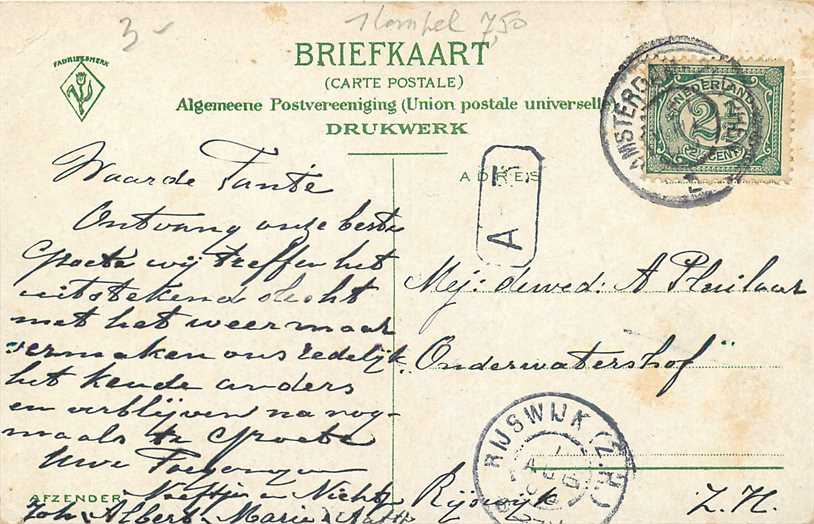 3-
Stempel 750
FABRIEKSMERK
BRIEFKAART
(CARTE POSTALE)
Algemeene Postvereeniging (Union postale universelle)
DRUKWERK
AMSTERDAM
NEDERLAND
2½
CENT
ADRES
A
Waarde Tante
Ontvang onze beste
Groete wij treffen het
uitstekend slecht
met het weer maar
vermaken ons redelijk
het kende anders
en verblijven na nog-
maals te Groete
Uwe Toegenegen
Neeftje en Nichtje
Joh Albert Marie
AFZENDER
Mej: de wed: A Pluilaar
„Onderwatershof"
Rijswijk
Z. H.
RIJSWIJK (Z.H)